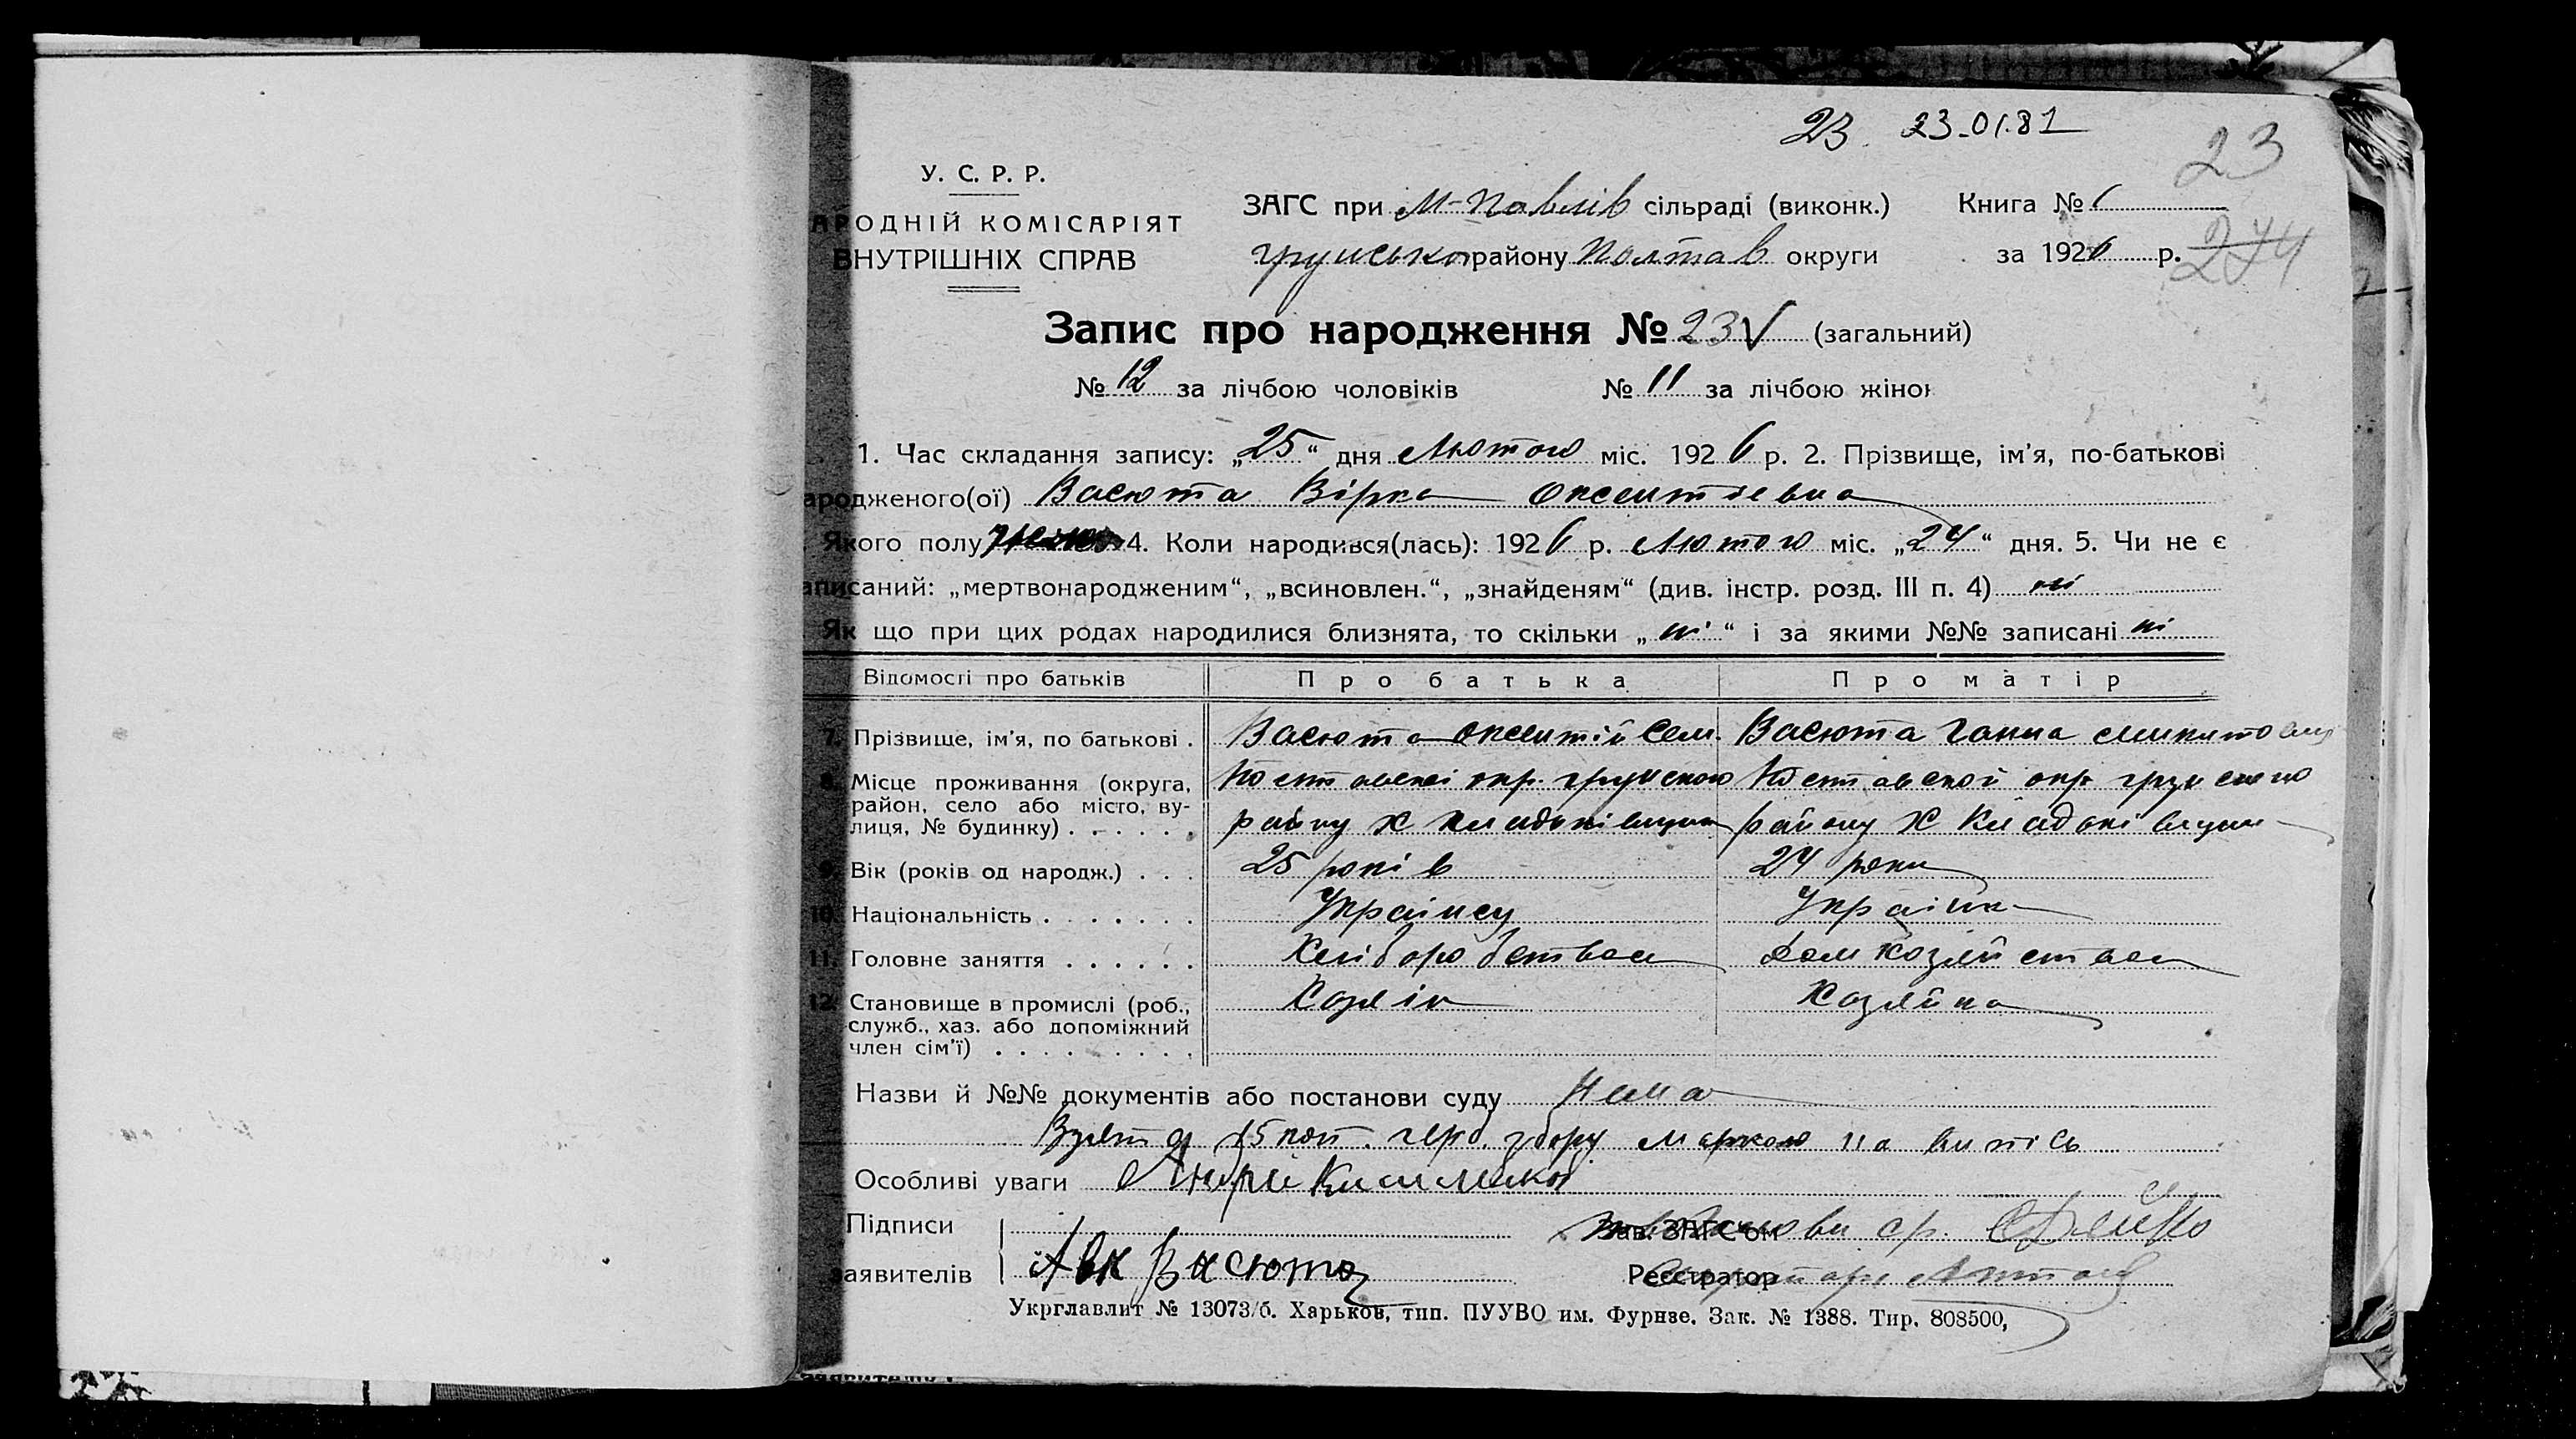 23 23-01.81
23
У. С. Р. Р.
АРОДНІЙ КОМІСАРІЯТ
ВНУТРІШНІХ СПРАВ
ЗАГС при М-Павлів сільраді (виконк.) Книга № 1
грунсько району Полтав округи за 1926 р. 274
Запис про народження № 23 V (загальний)
№ 12 за лічбою чоловіків № 11 за лічбою жінок
1. Час складання запису: „25“ дня Лютого міс. 1926 р. 2. Прізвище, ім’я, по-батькові
ародженого(ої) Васюта Вірка Оксентіевна
Якого полу 4. Коли народився(лась): 1926 р. Лютого міс. „24“ дня. 5. Чи не є
аписаний: „мертвонародженим“, „всиновлен.“, „знайденям“ (див. інстр. розд. III п. 4) ні
Як що при цих родах народилися близнята, то скільки „ні“ і за якими №№ записані ні
Відомості про батьків Про батька Про матір
7. Прізвище, ім’я, по батькові . Васюта Оксентій Сем. Васюта Ганна Микитовна
8. Місце проживання (округа, окр. грунского окр грунского
район, село або місто, ву-
лиця, № будинку) . . . . . . району х району Х
9. Вік (років од народж.) . . . 25 років 24 роки
10. Національність . . . . . . . Українец Українка
11. Головне заняття . . . . . . Хліборобство Домхозяйство
12. Становище в промислі (роб., Хозяін Хазяйка
служб., хаз. або допоміжний
член сім’ї) . . . . . . . . .
Назви й №№ документів або постанови суду Нема
Взято 15 коп. герб. збору маркою на випісь
Особливі уваги Андрій
Підписи Зав. ЗАГС’ом
заявителів Авк Васюта Реєстратор
Укрглавлит № 13073/б. Харьков, тип. ПУУВО им. Фрунзе. Зак. № 1388. Тир. 808500,